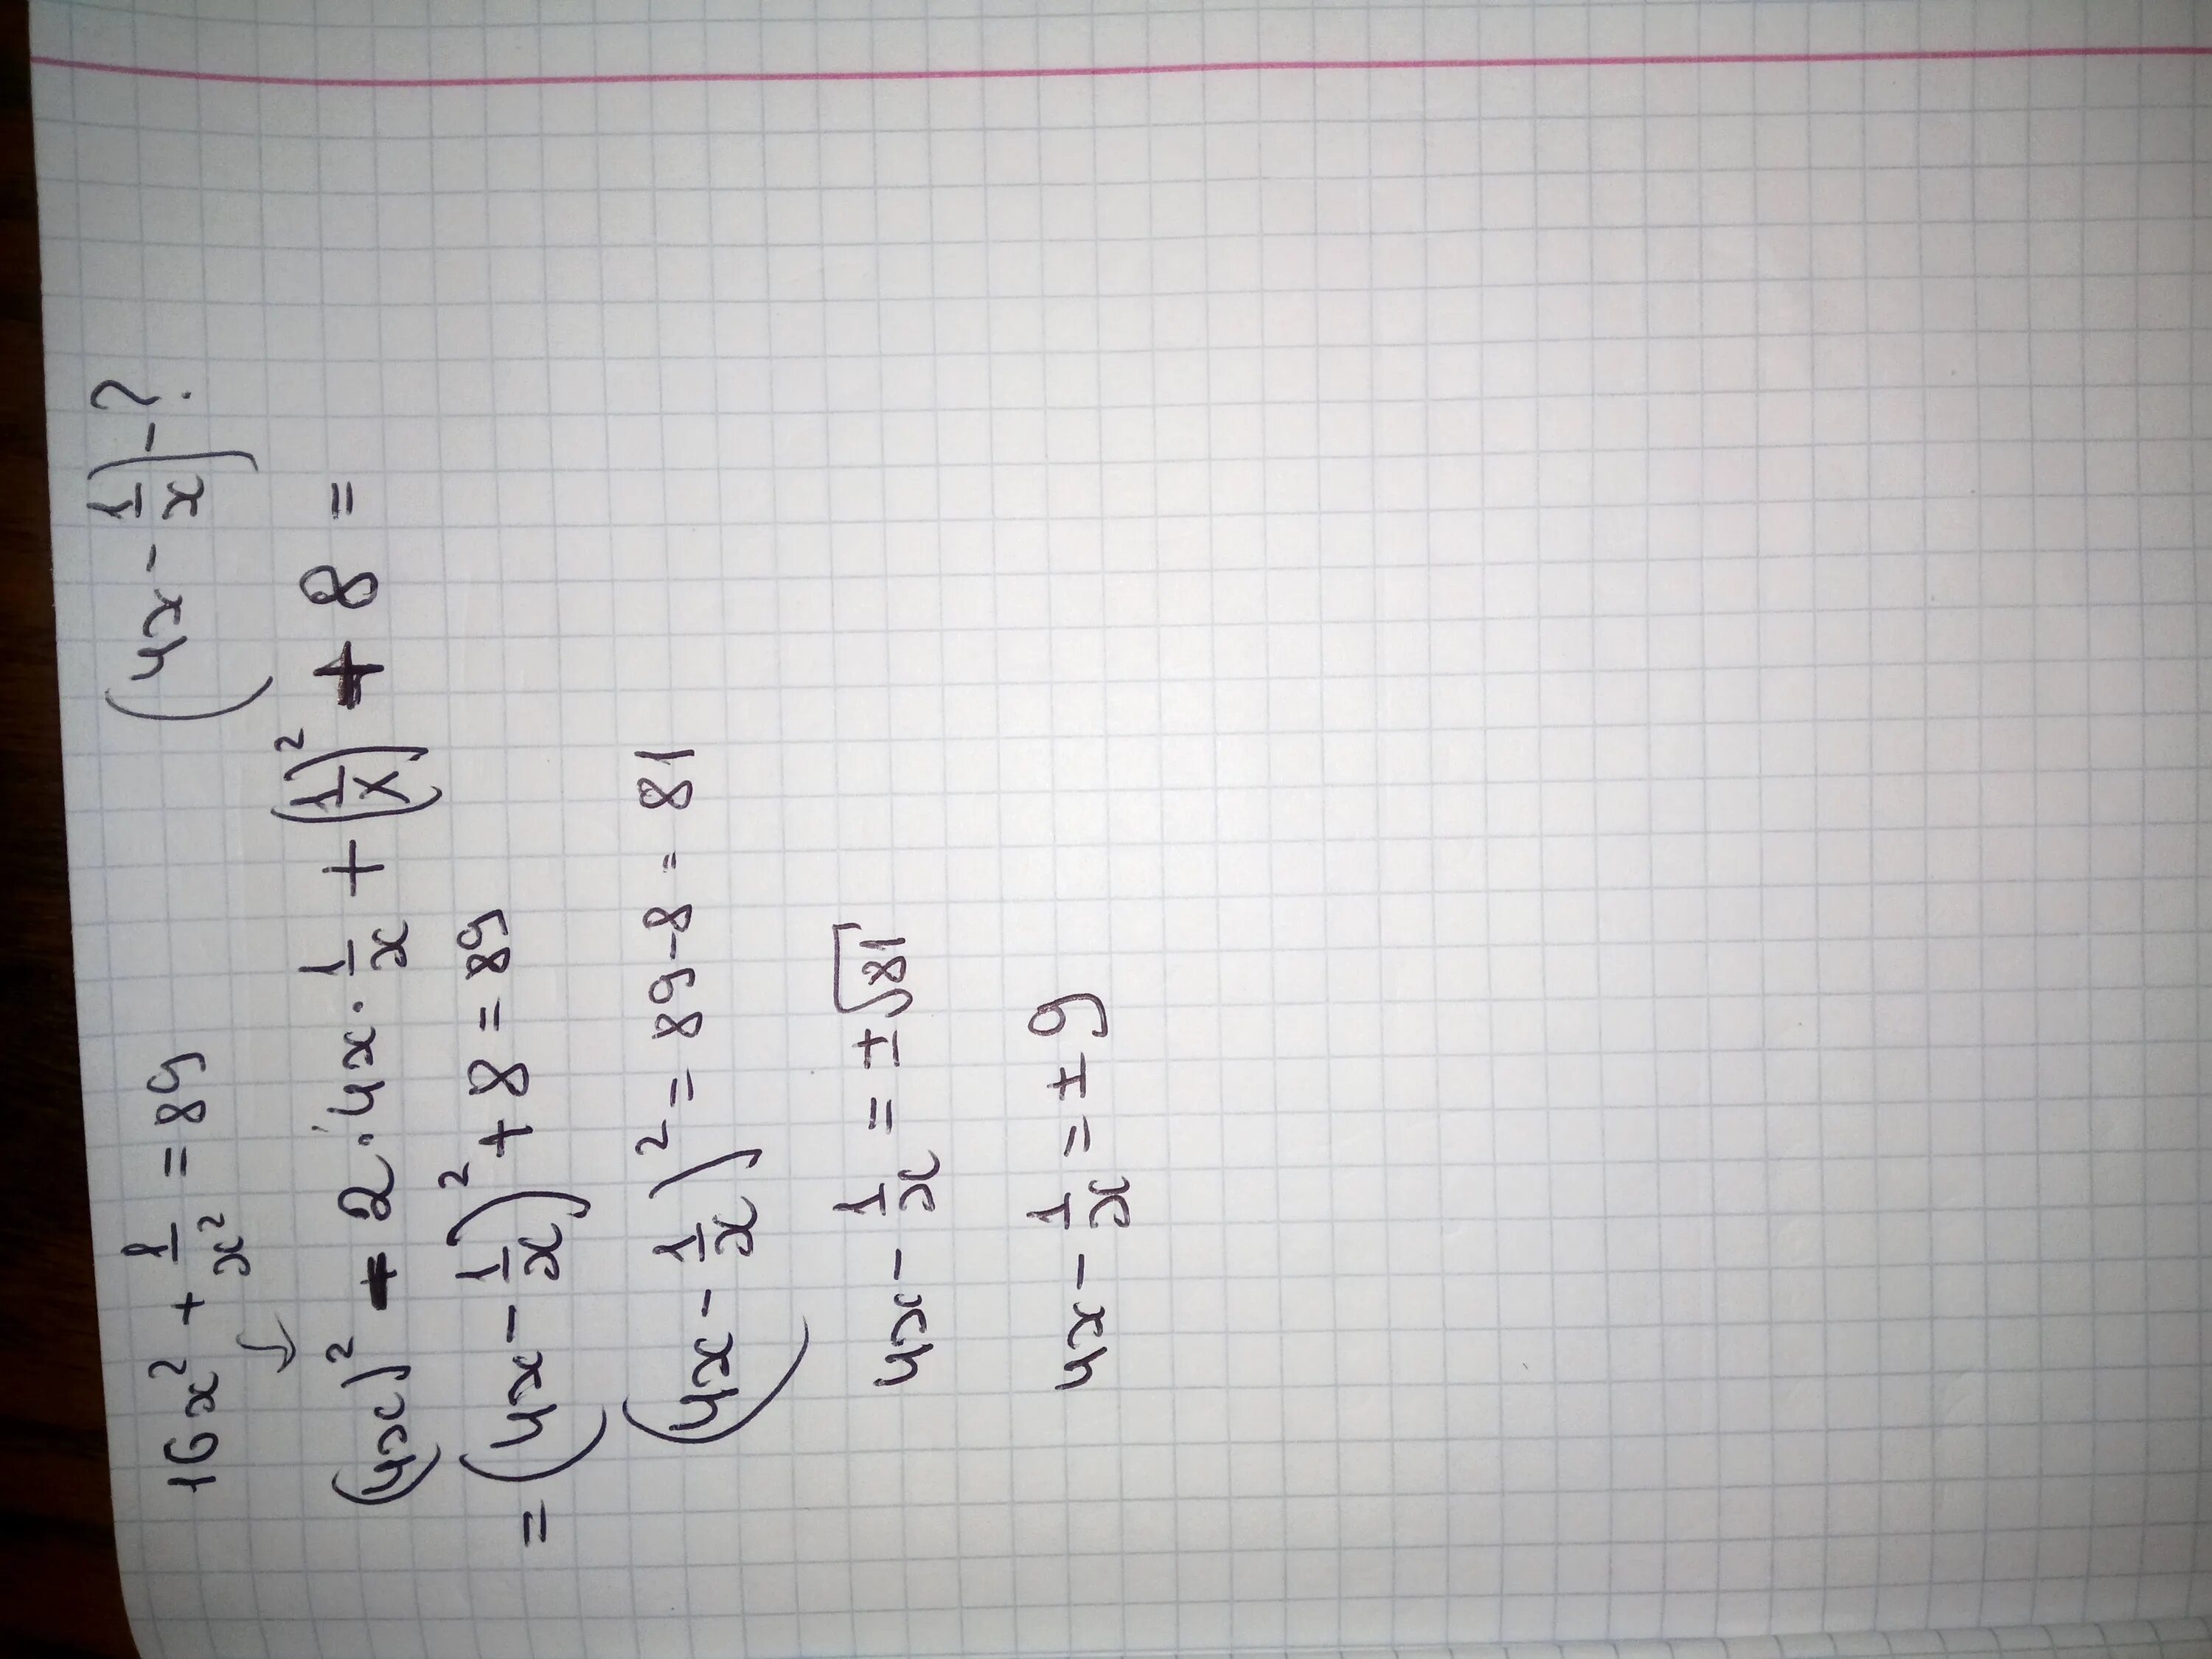 16x² + 1/x² = 89 (4x - 1/x) - ?
(4x)² - 2 · 4x · 1/x + (1/x)² + 8 =
= (4x - 1/x)² + 8 = 89
(4x - 1/x)² = 89 - 8 = 81
4x - 1/x = ± √81
4x - 1/x = ± 9